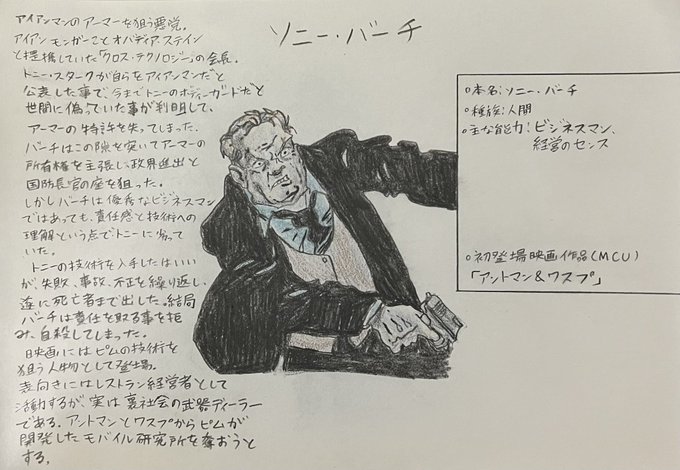 ソニー・バーチ
アイアンマンのアーマーを狙う悪党。
アイアンモンガーことオバディア・ステイン
と提携していた「クロス・テクノロジー」の会長。
トニー・スタークが自らをアイアンマンだと
公表した事で、今までトニーのボディーガードだと
世間に偽っていた事が判明して、
アーマーの特許を失ってしまった。
バーチはこの隙を突いてアーマーの
所有権を主張し、政界進出と
国防長官の座を狙った。
しかしバーチは優秀なビジネスマン
ではあっても、責任感と技術への
理解という点でトニーに劣って
いた。
トニーの技術を入手したはいい
が、失敗、事故、不正を繰り返し、
遂に死亡者まで出した。結局
バーチは責任を取る事を拒
み、自殺してしまった。
映画にはピムの技術を
狙う人物として登場。
表向きにはレストラン経営者として
活動するが、実は裏社会の武器ディーラー
である。アントマンとワスプからピムが
開発したモバイル研究所を奪おうと
する。
○本名:ソニー・バーチ
○種族:人間
○主な能力:ビジネスマン、
経営のセンス
○初登場映画作品(MCU)
「アントマン&ワスプ」